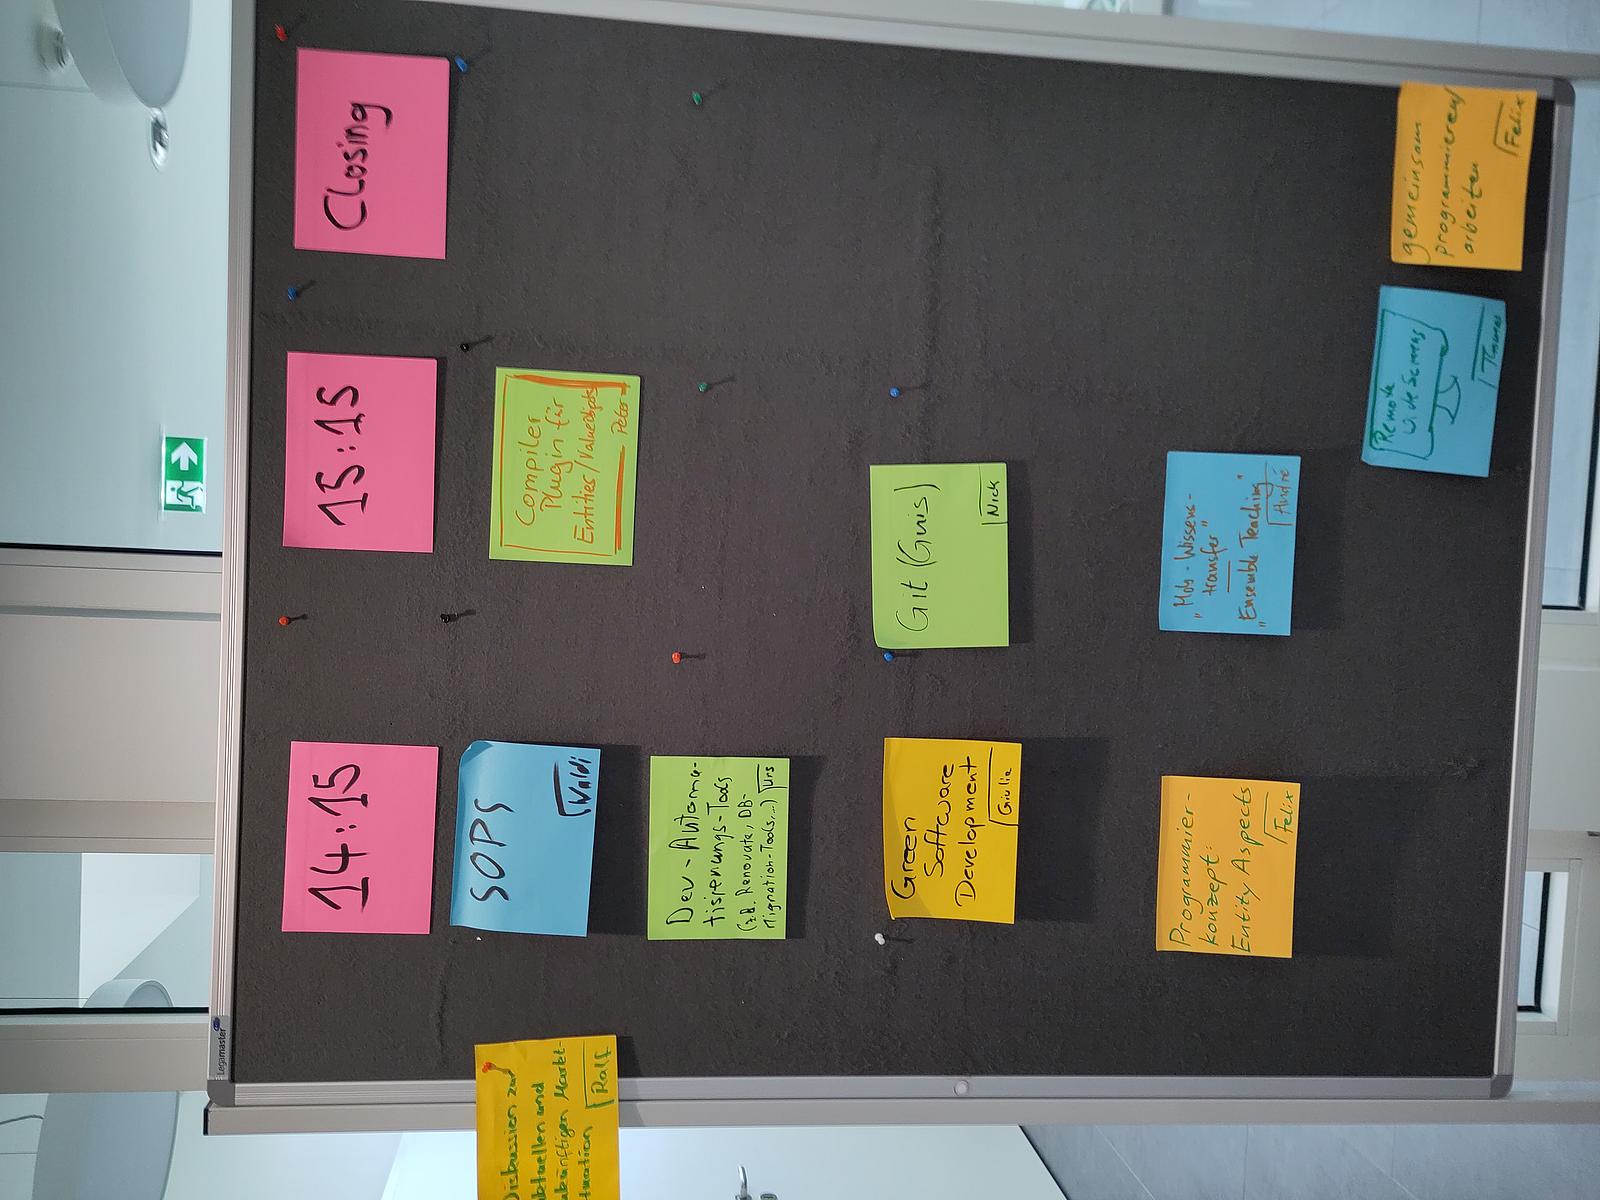 Legamaster
14:15
15:15
Closing
Diskussion zur
aktuellen und
zukünftigen Markt-
situation
Ralf
SOPS
Waldi
Compiler
Plugin für
Entities/Valueobjects
Peter
Dev-Automa-
tisierungs-Tools
(z.B. Renovate, DB-
Migration-Tools,...)
Urs
Green
Software
Development
Giulia
Git (Guis)
Nick
Programmier-
konzept:
Entity Aspects
Felix
"Mob-Wissens-
transfer"
"Ensemble Teaching"
André
Remote
WideScreens
Thomas
gemeinsam
programmieren/
arbeiten
Felix